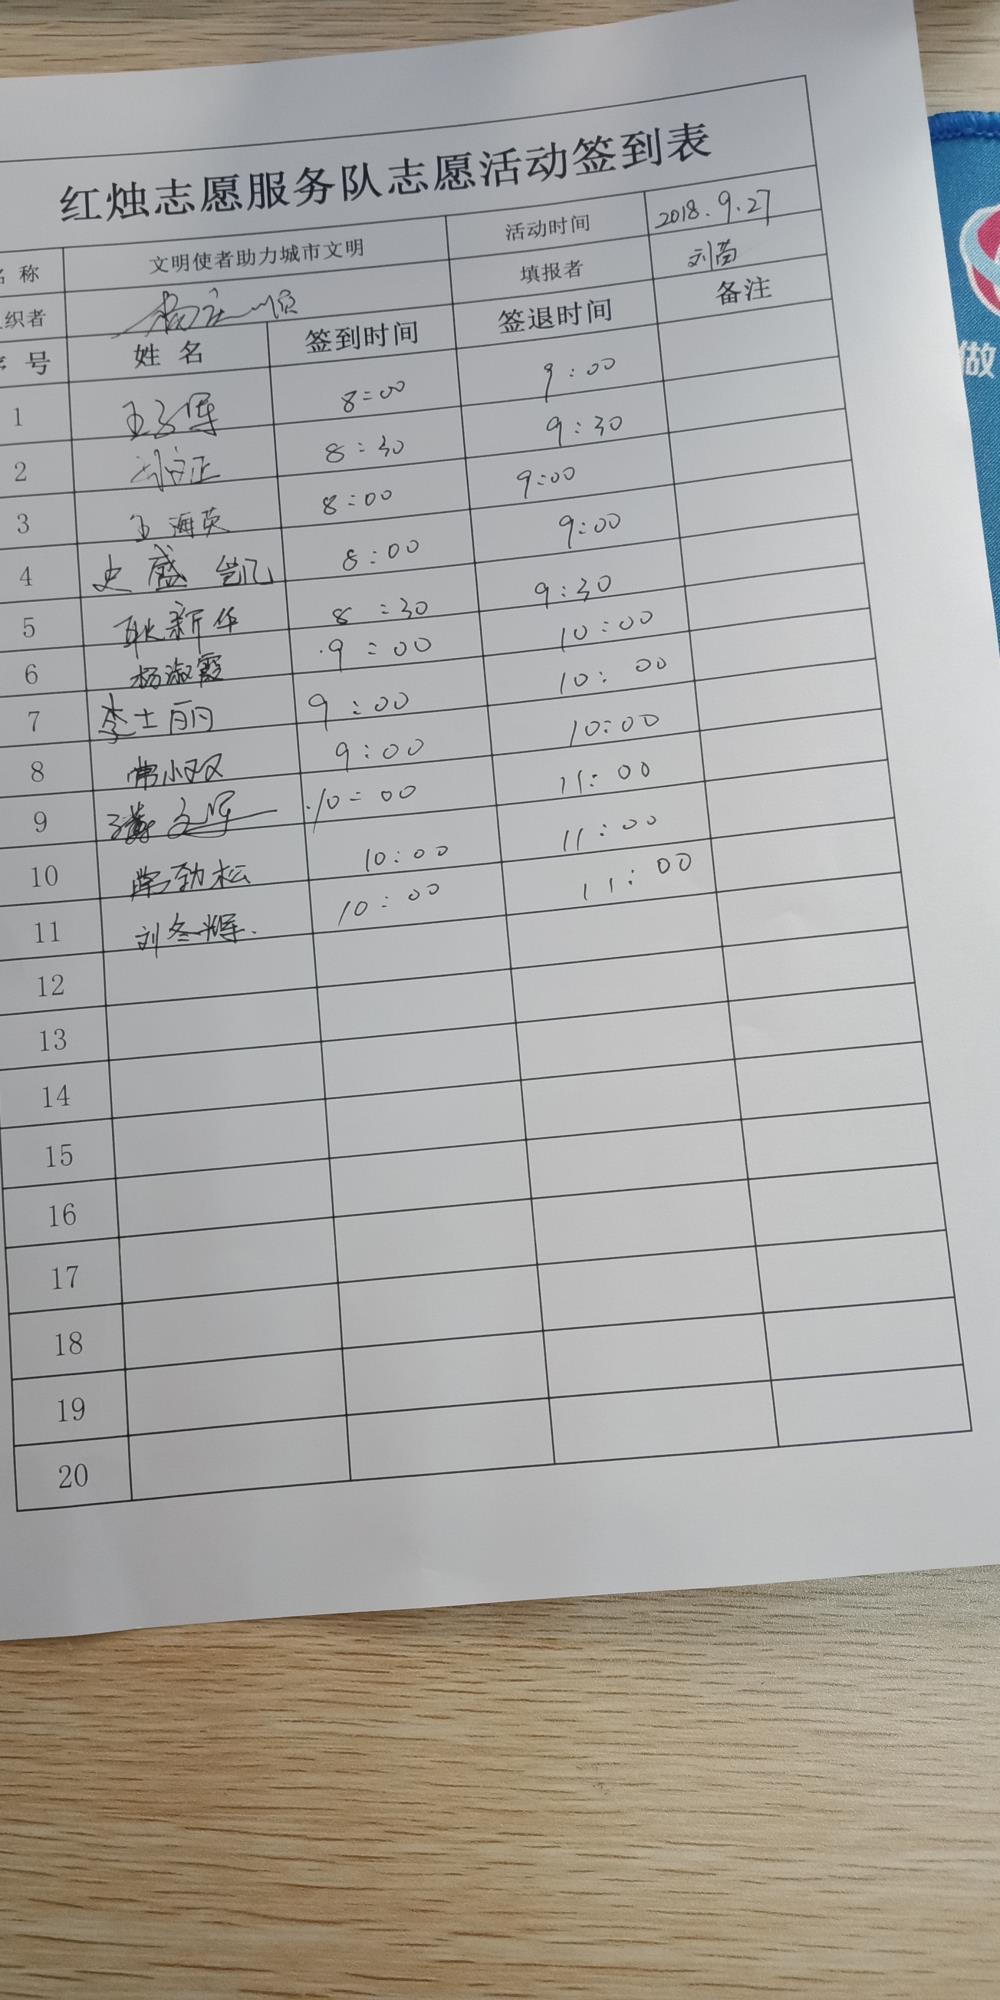 红烛志愿服务队志愿活动签到表
名 称 文明使者助力城市文明 活动时间 2018.9.27
织者 填报者 刘苗
序 号 姓 名 签到时间 签退时间 备注
1 8:00 9:00
2 8:30 9:30
3 王海英 8:00 9:00
4 史盛凯 8:00 9:00
5 耿新华 8:30 9:30
6 杨淑霞 9:00 10:00
7 李士丽 9:00 10:00
8 常小双 9:00 10:00
9 10:00 11:00
10 常劲松 10:00 11:00
11 刘冬辉. 10:00 11:00
12
13
14
15
16
17
18
19
20
做